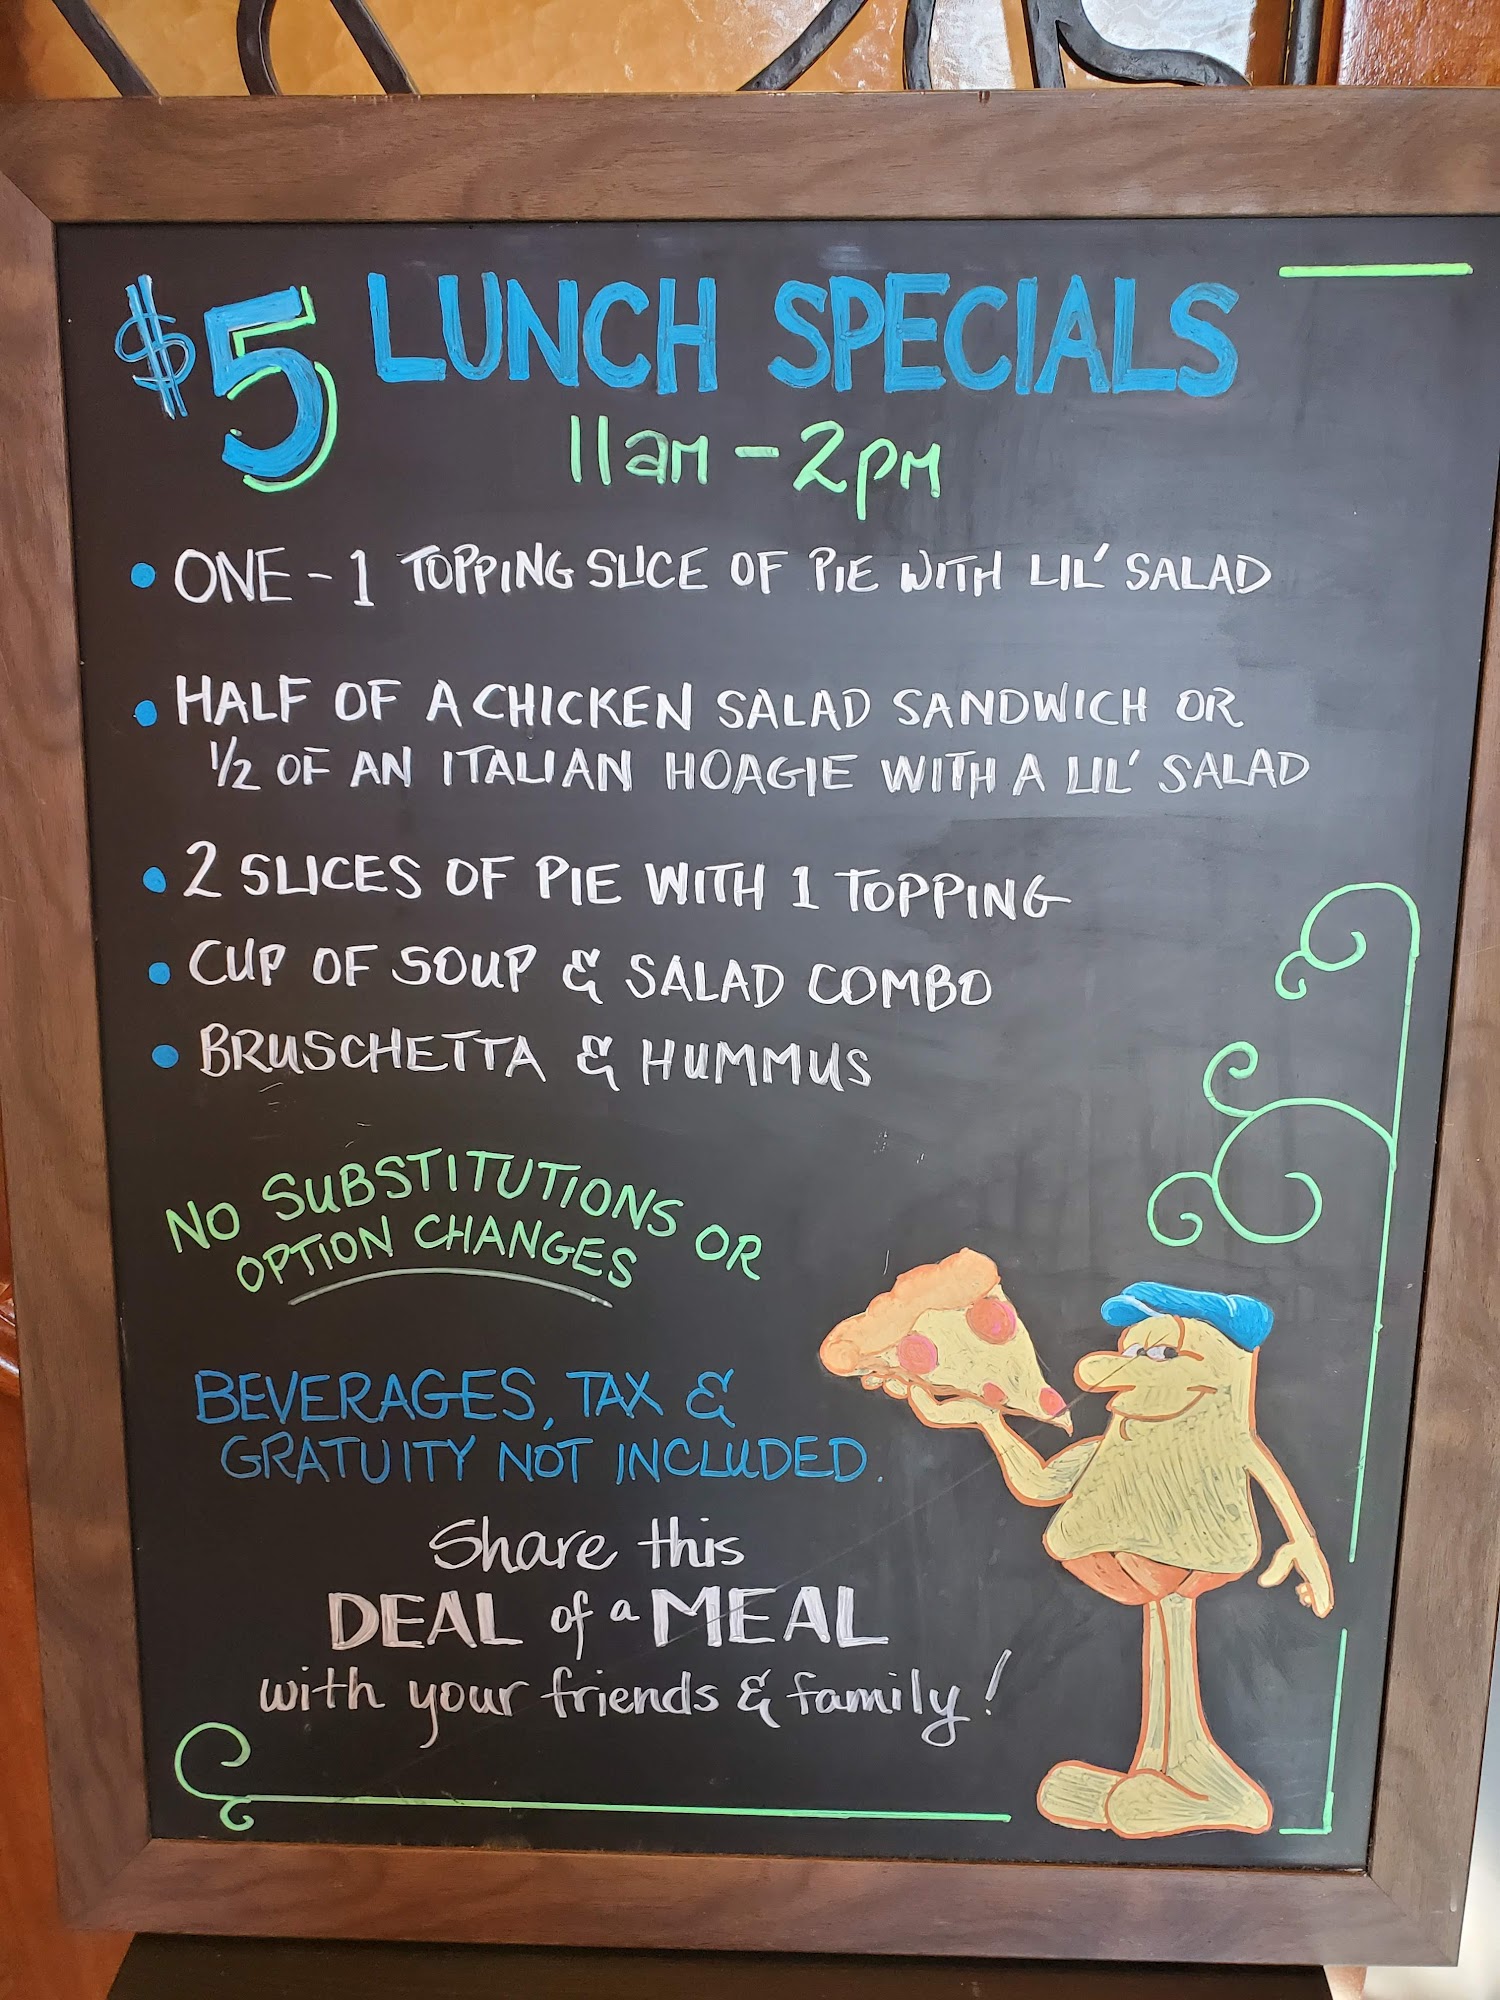 $5 LUNCH SPECIALS
11am - 2pm
• ONE - 1 TOPPING SLICE OF PIE WITH LIL' SALAD
• HALF OF A CHICKEN SALAD SANDWICH OR
1/2 OF AN ITALIAN HOAGIE WITH A LIL' SALAD
• 2 SLICES OF PIE WITH 1 TOPPING
• CUP OF SOUP & SALAD COMBO
• BRUSCHETTA & HUMMUS
NO SUBSTITUTIONS OR
OPTION CHANGES
BEVERAGES, TAX &
GRATUITY NOT INCLUDED.
Share this
DEAL of a MEAL
with your friends & family!